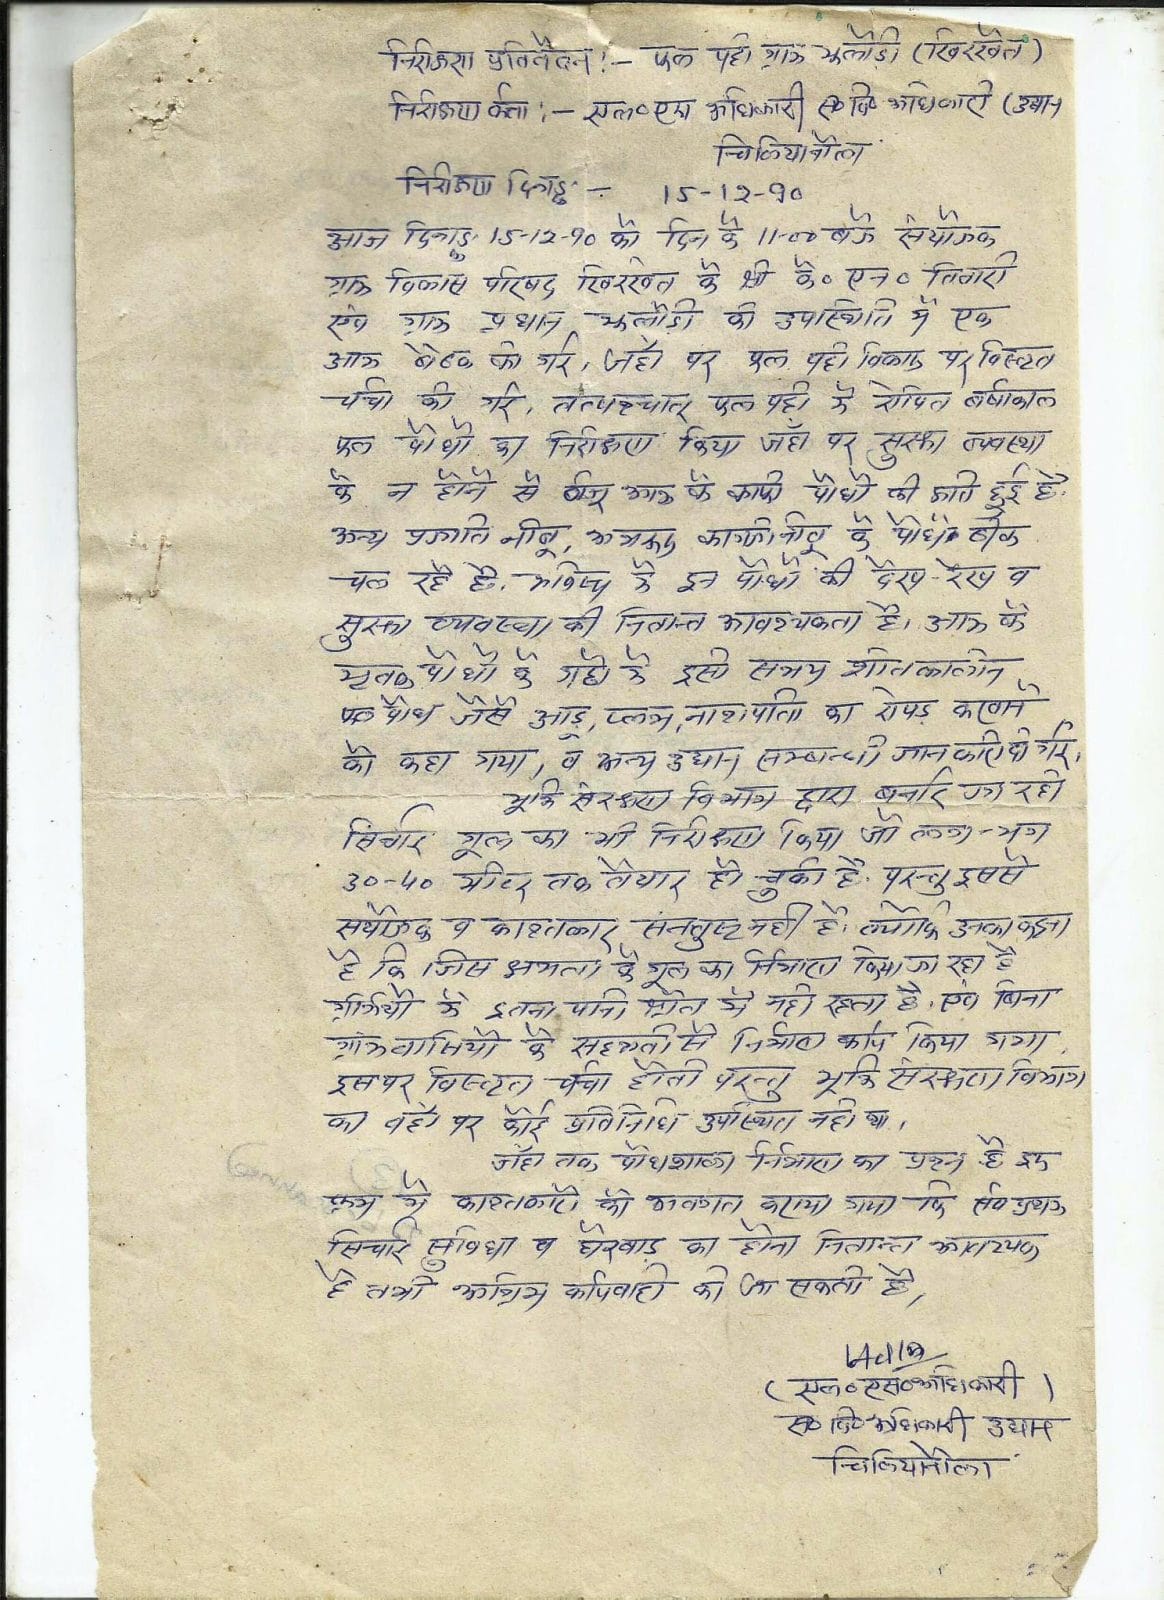 निरीक्षण प्रतिवेदन :- फल पट्टी ग्राम झलोड़ी (खिरखेत)
निरीक्षण कर्ता :- एल० एस अधिकारी स० वि० अधिकारी (उद्यान
चिलियानौला
निरीक्षण दिनाङ्क - 15-12-90
आज दिनाङ्क 15-12-90 को दिन के 11-00 बजे संयोजक
ग्राम विकास परिषद खिरखेत के श्री के० एन० तिवारी
एवं ग्राम प्रधान झलोड़ी की उपस्थिति में एक
आम बैठक की गई, जहाँ पर फल पट्टी विकास पर विस्तृत
चर्चा की गई, तत्पश्चात् फल पट्टी में रोपित बर्षाकाल
फल पौधों का निरीक्षण किया जहाँ पर सुरक्षा व्यवस्था
के न होने से बीजू आम के काफी पौधों की क्षति हुई है.
अन्य प्रजाति नीबू, अमरूद कागजी नीबू के पौधे ठीक
चल रहे है. भविष्य में इन पौधों की देख-रेख व
सुरक्षा व्यवस्था की नितान्त आवश्यकता है। आम के
मृतक पौधों के गड्ढों में इसी समय शीतकालीन
फल पौध जैसे आड़ू, प्लम, नाशपाती का रोपड़ करवाने
को कहा गया, व अन्य उद्यान सम्बन्धी जानकारी दी गई,
भूमि संरक्षण विभाग द्वारा बनाई जा रही
सिंचाई गूल का भी निरीक्षण किया जो लगा-भग
30-40 मीटर तक तैयार हो चुकी है. परन्तु इससे
संयोजक व काश्तकार सन्तुष्ट नहीं है. क्योंकि उनका कहना
है कि जिस क्षमता के गूल का निर्माण किया जा रहा है
गर्मियों में इतना पानी श्रोत में नही रहता है. एवं बिना
ग्रामवासियों के सहमती से निर्माण कार्य किया गया,
इस पर विस्तृत चर्चा होती परन्तु भूमि संरक्षण विभाग
का वहाँ पर कोई प्रतिनिधि उपस्थित नही था,
जहाँ तक पौधशाला निर्माण का प्रश्न है इस
क्रम में काश्तकारों को अवगत कराया गया कि सर्व प्रथम
सिंचाई सुविधा व घेरवाड़ का होना नितान्त आवश्यक
है तभी अग्रिम कार्यवाही की जा सकती है,
(एल० एस० अधिकारी)
स० वि० अधिकारी उद्यान
चिलियानौला